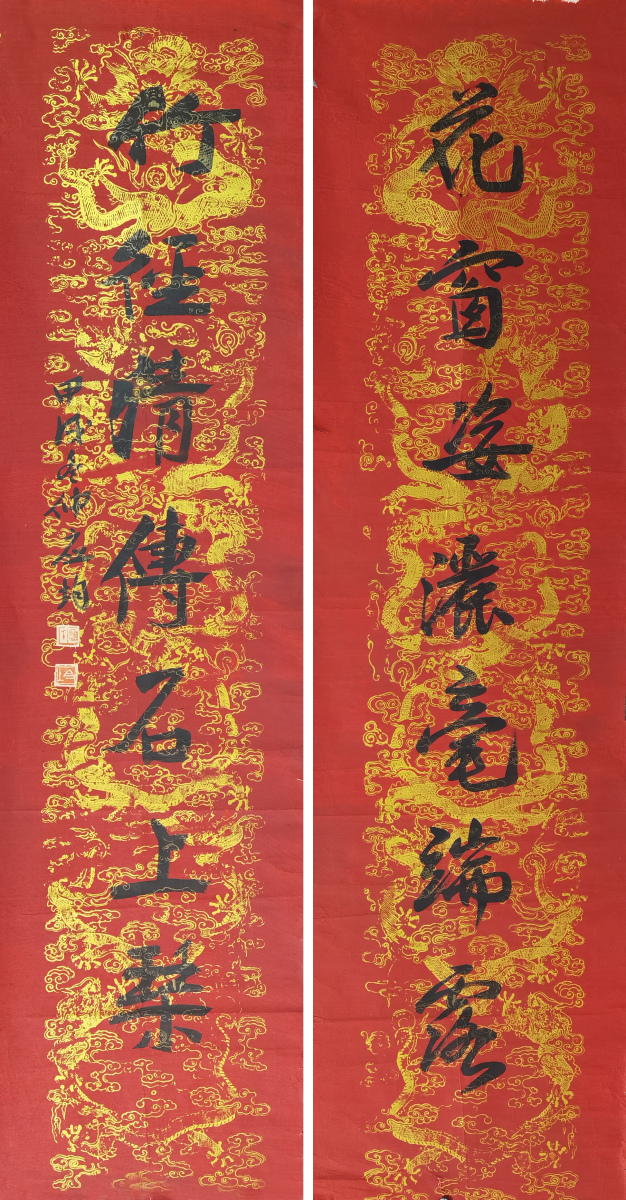 花窗姿灑毫端露
竹徑情傳石上琴
甲申冬仲